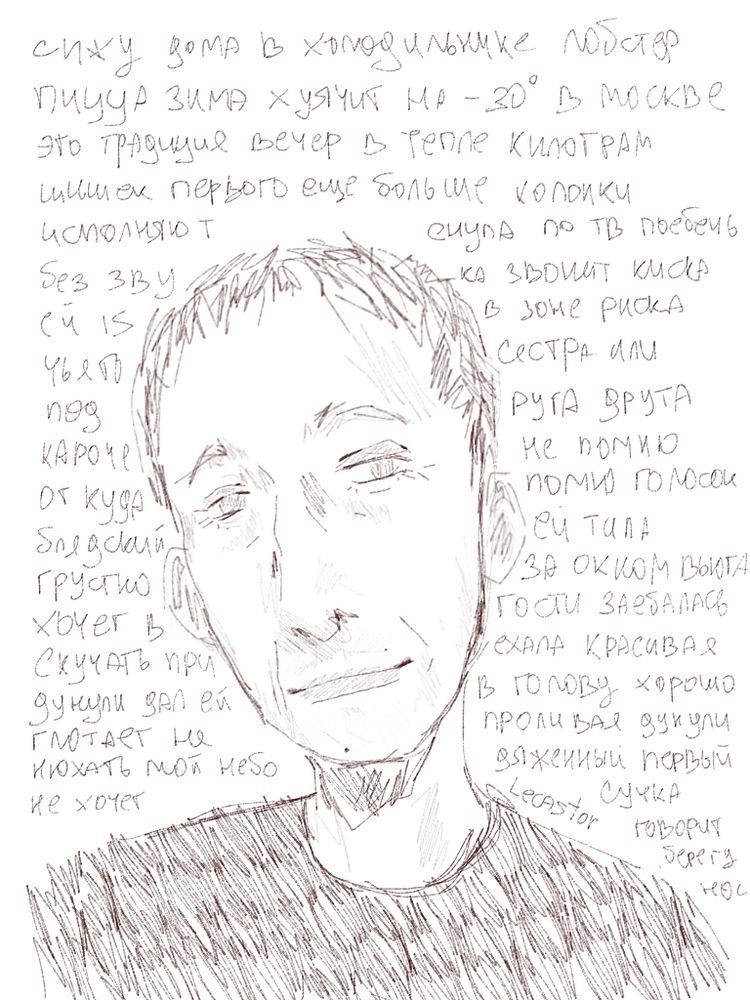 сижу дома в холодильнике лобстер
пицца зима хуячит на -30° в москве
это традиция вечер в тепле килограм
шишек первого еще больше колонки
исполняют снупа по тв поебень
без зву ка звонит киска
ей 15 в зоне риска
чья то сестра или
под руга друга
кароче не помню
от куда помню голосок
блядский ей типа
грустно за окном вьюга
хочет в гости заебалась
скучать при ехала красивая
дунули дал ей в голову хорошо
глотает не проливая дунули
нюхать мол небо дяженный первый
не хочет сучка
Lecastor
говорит
берегу
нос